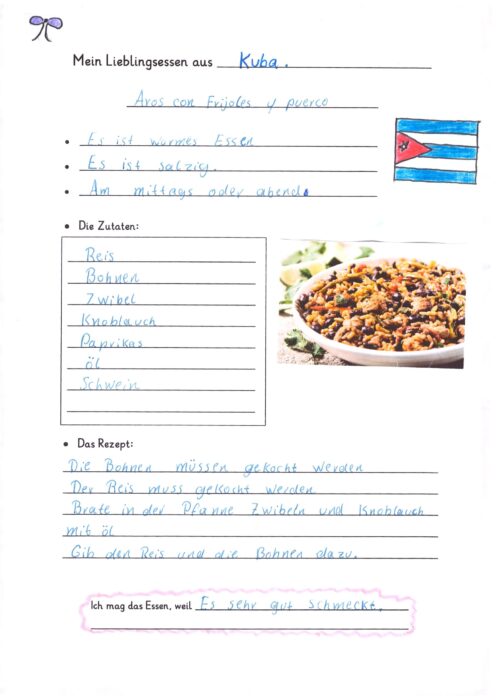 Mein Lieblingsessen aus Kuba.
Aros con Frijoles y puerco
Es ist warmes Essen
Es ist salzig.
Am mittags oder abend.
Die Zutaten:
Reis
Bohnen
Zwibel
Knoblauch
Paprikas
öl
Schwein
Das Rezept:
Die Bohnen müssen gekocht werden
Der Reis muss gekocht werden
Brate in der Pfanne Zwibeln und Knoblauch
mit öl
Gib den Reis und die Bohnen dazu.
Ich mag das Essen, weil Es sehr gut schmeckt.